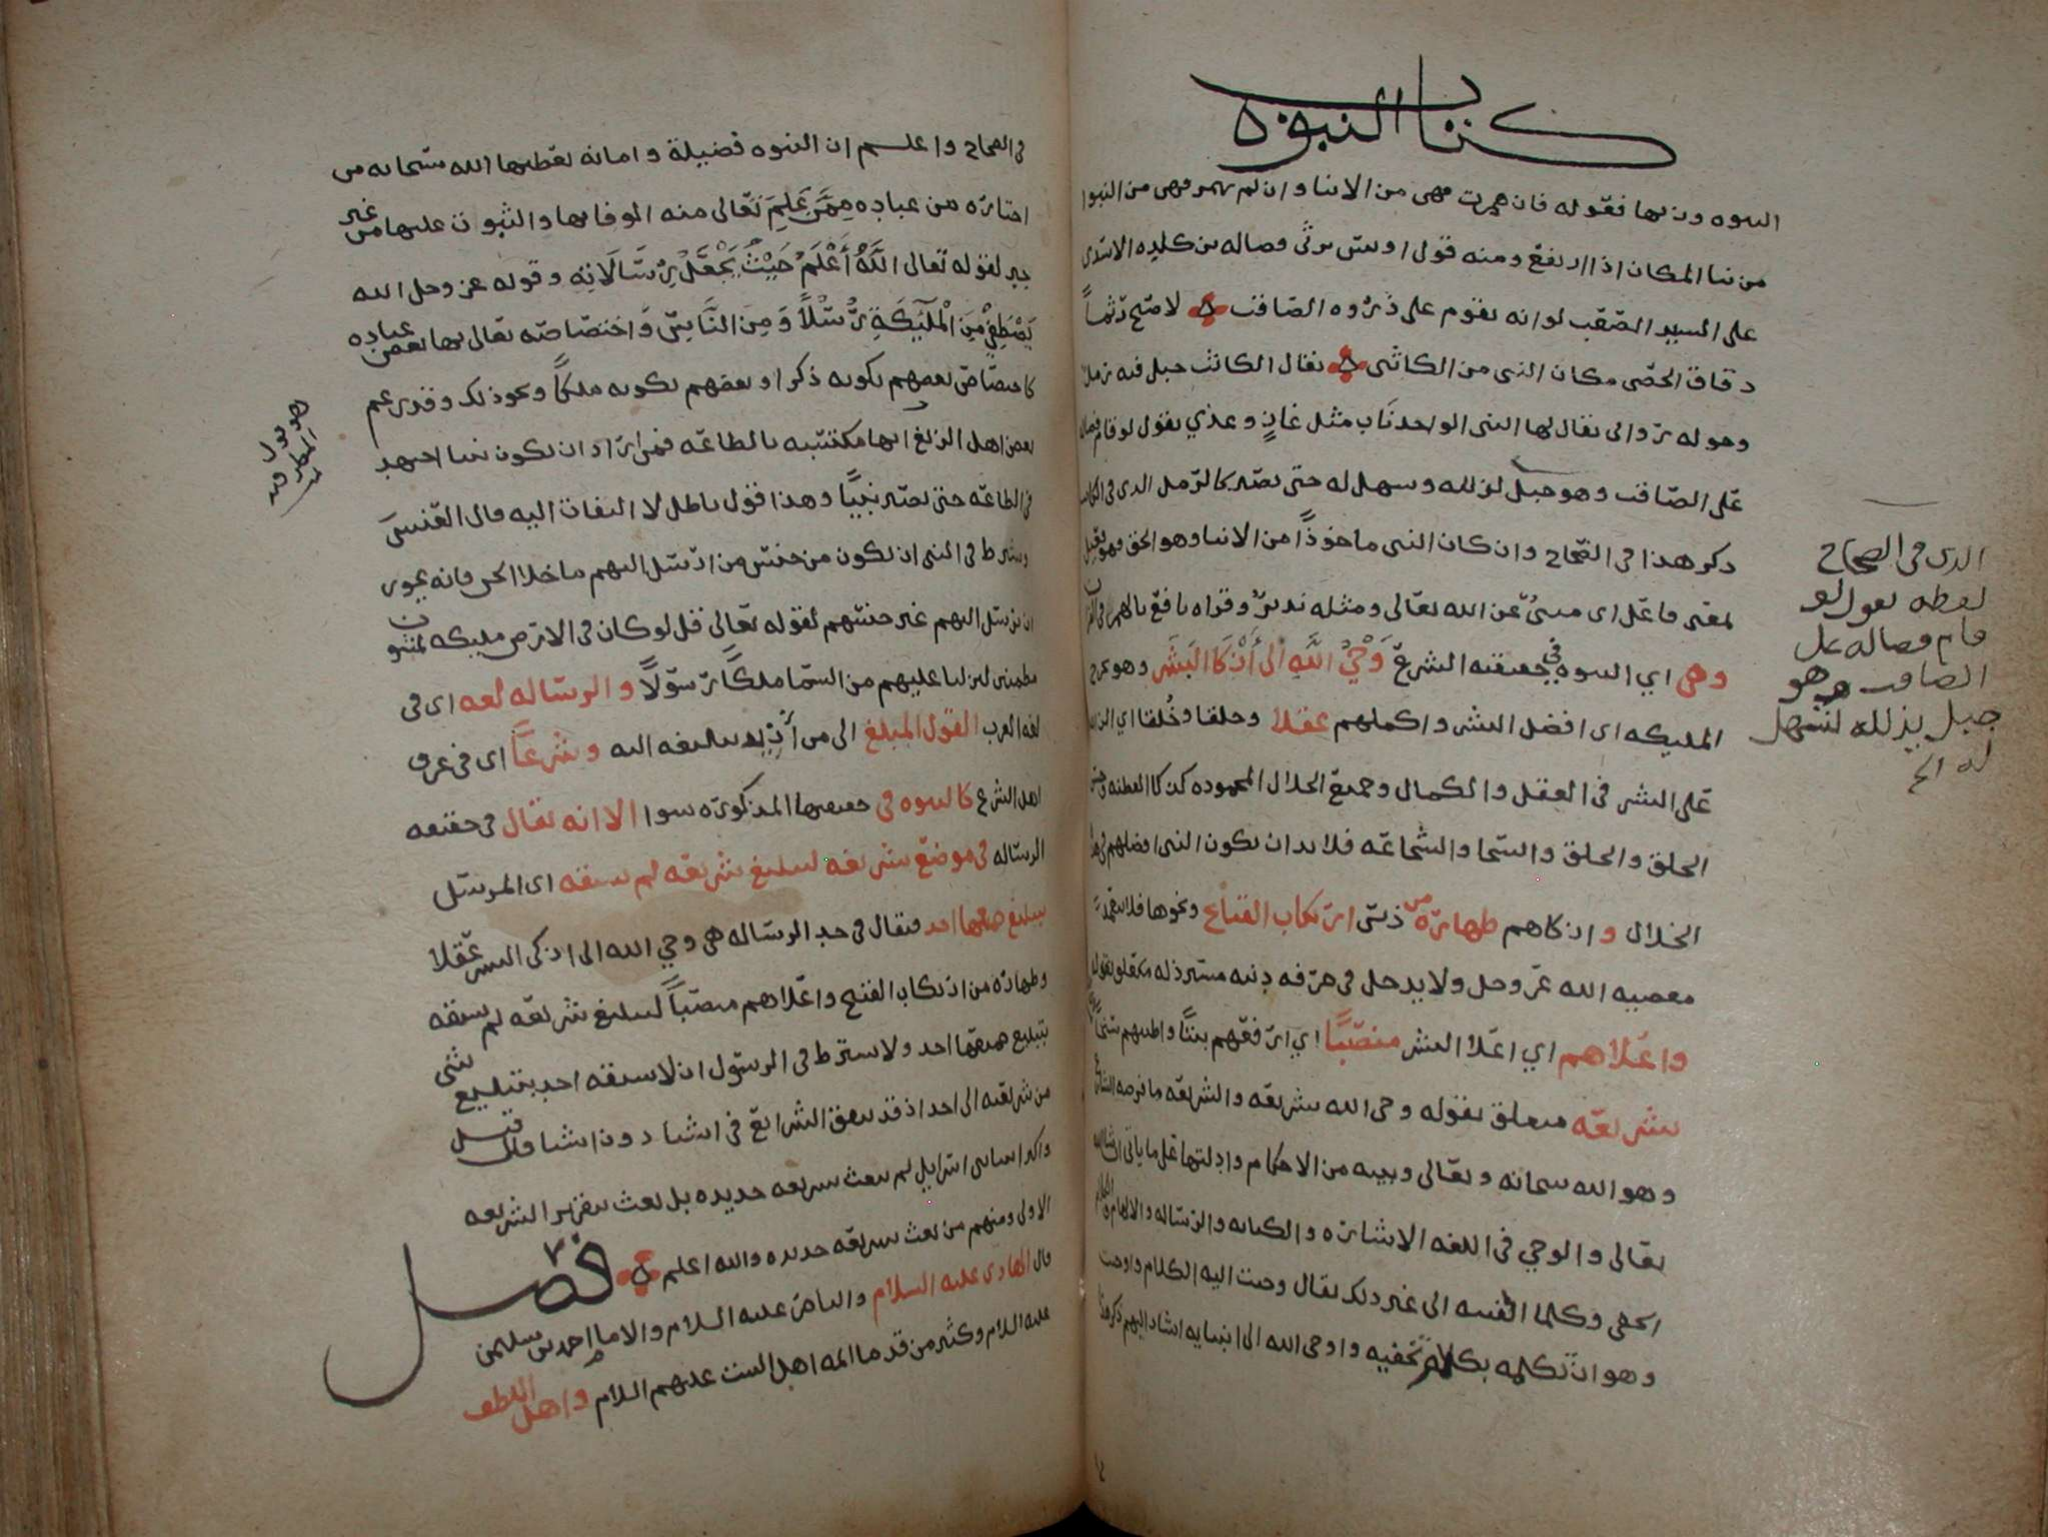 كتاب النبوة
النبوه وزنها فعوله فان همزت فهى من الانبا وان لم تهمز فهى من النبوا
من نبا المكان اذا ارتفع ومنه قول اوس يرثى فضاله بن كلده الاسدى
على السيد الصعب لو انه يقوم على ذروه الصاقب لاصبح رتما
دقاق الحصى مكان النبى من الكاثب يقال الكاثب جبل فيه رمل
وحوله روابى يقال لها النبى الواحد ناب مثل غاز وغذي يقول لو قام فضاله
على الصاقب وهو جبل لذلله وسهل له حتى يصير كالرمل الذى فى الكاثب
ذكر هذا فى الصحاح وان كان النبى ماخوذا من الانبا وهو الحق فهو فعيل
بمعنى فاعل اى منبئ عن الله تعالى ومثله نذير وقراه نافع بالهمز فى القران
وهى اي النبوه فى حقيقته الشرع وَحْيُ اللهِ الى أَزْكَا البَشَر وهو يخرج
المليكه اى افضل البشر واكملهم عقلا وخلقا وخُلقا اي الزايد
على البشر فى العقل والكمال وجميع الخلال المحموده كذكا الفطنه وحسن
الخلق والخلق والسخا والشجاعه فلا بد ان يكون النبى افضلهم فى هذه
الخلال وازكاهم طهارة من دنس ارتكاب القبايح ونحوها فلا يتعمد
معصيه الله عز وجل ولا يدخل فى حرفه دنيه مسترذله
واعلاهم اي اعلا البشر منصبا اي ارفعهم بيتا واطيبهم
بشريعه متعلق بقوله وحى الله بشريعه والشريعه ما نوصه الشارع
وهو الله سبحانه وتعالى وبينه من الاحكام وادلتها على ما ياتى ان شا الله
تعالى والوحي فى اللغه الاشاره والكتابه والرساله والالهام والكلام
الخفى وكلما القيته الى غيرك يقال وحيت اليه الكلام واوحيت
وهو ان تكلمه بكلام تخفيه واوحى الله الى انبيايه اشار اليهم ذكر هذا
الذى فى الصحاح
لفظه يقول لو
قام فضاله على
الصاقب وهو
جبل يذلله لتسهل
له الخ
فى الصحاح واعلم ان النبوه فضيلة وامانه يعطيها الله سبحانه من
اختاره من عباده مِمَّن عَلِمَ تعالى منه الوفا بها والثبوت عليها من غير
جبر لقوله تعالى اللَّهُ أَعْلَمُ حَيْثُ يَجْعَلُ رِسَالَاتِه وقوله عز وجل الله
يَصْطَفِي مِنَ الْمَلَٰٓئِكَةِ رُسُلاً وَمِنَ النَّاسِ واختصاصه تعالى بها بعض عباده
كاختصاص بعضهم بكونه ذكرا وبعضهم بكونه ملكا ونحو ذلك وقد زعم
بعض اهل الزيغ انها مكتسبه بالطاعه فمن اراد ان يكون نبيا اجتهد
فى الطاعه حتى يصير نبيا وهذا قول باطل لا التفات اليه قال العنسى
ويشرط فى النبى ان يكون من جنس من ارسل اليهم ما خلا الجن فانه يجوز
ان يرسل اليهم غير جنسهم لقوله تعالى قل لو كان فى الارض مليكه يمشون
مطمئنين لنزلنا عليهم من السما ملكا رسولا والرساله لغه اى فى
لغه العرب القول المبلغ الى من أُرِيد تبليغه اليه وشرعا اى فى عرف
اهل الشرع كالنبوه فى حقيقتها المذكوره سوا الا انه يقال فى حقيقه
الرساله فى موضع بشريعه لتبليغ شريعه لم يسبقه اى المرسل
بتبليغ جميعها احد فيقال فى حد الرساله هى وحي الله الى ازكى البشر عقلا
وطهاره من ارتكاب القبيح واعلاهم منصبا لتبليغ شريعه لم يسبقه
بتبليغ جميعها احد ولا يشترط فى الرسول ان لا يسبقه احد بتبليغ شى
من شريعته الى احد اذ قد يتفق الشرائع فى اشيا دون اشيا قيل
واكثر انبيا بنى اسرايل لم يبعث بشريعه جديده بل بعث بتقرير الشريعه
الاولى ومنهم من بعث بشريعه جديده والله اعلم فصل
قال الهادى عليه السلام والناصر عليه السلام والامام احمد بن سليمن
عليه السلام وكثير من قدما ائمه اهل البيت عليهم السلام واهل اللطف
هو قول
المطرفيه